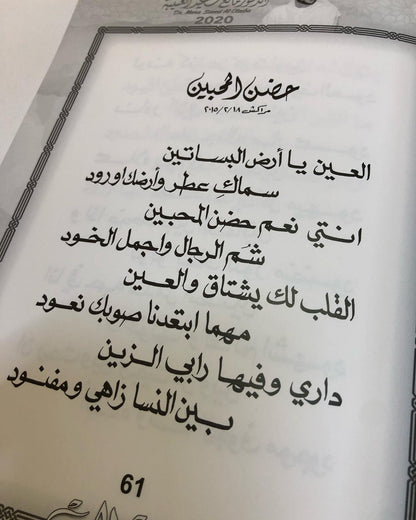 Dr. Mana Saeed Al Otaiba
2020
حضن المحبين
مراكش ٢٠١٥/٢/١٨
العين يا أرض البساتين
سماك عطر وأرضك اورود
انتي نعم حضن المحبين
شم الرجال واجمل الخود
القلب لك يشتاق والعين
مهما ابتعدنا صوبك نعود
داري وفيها رابي الزين
بين النسا زاهي ومفنود
61